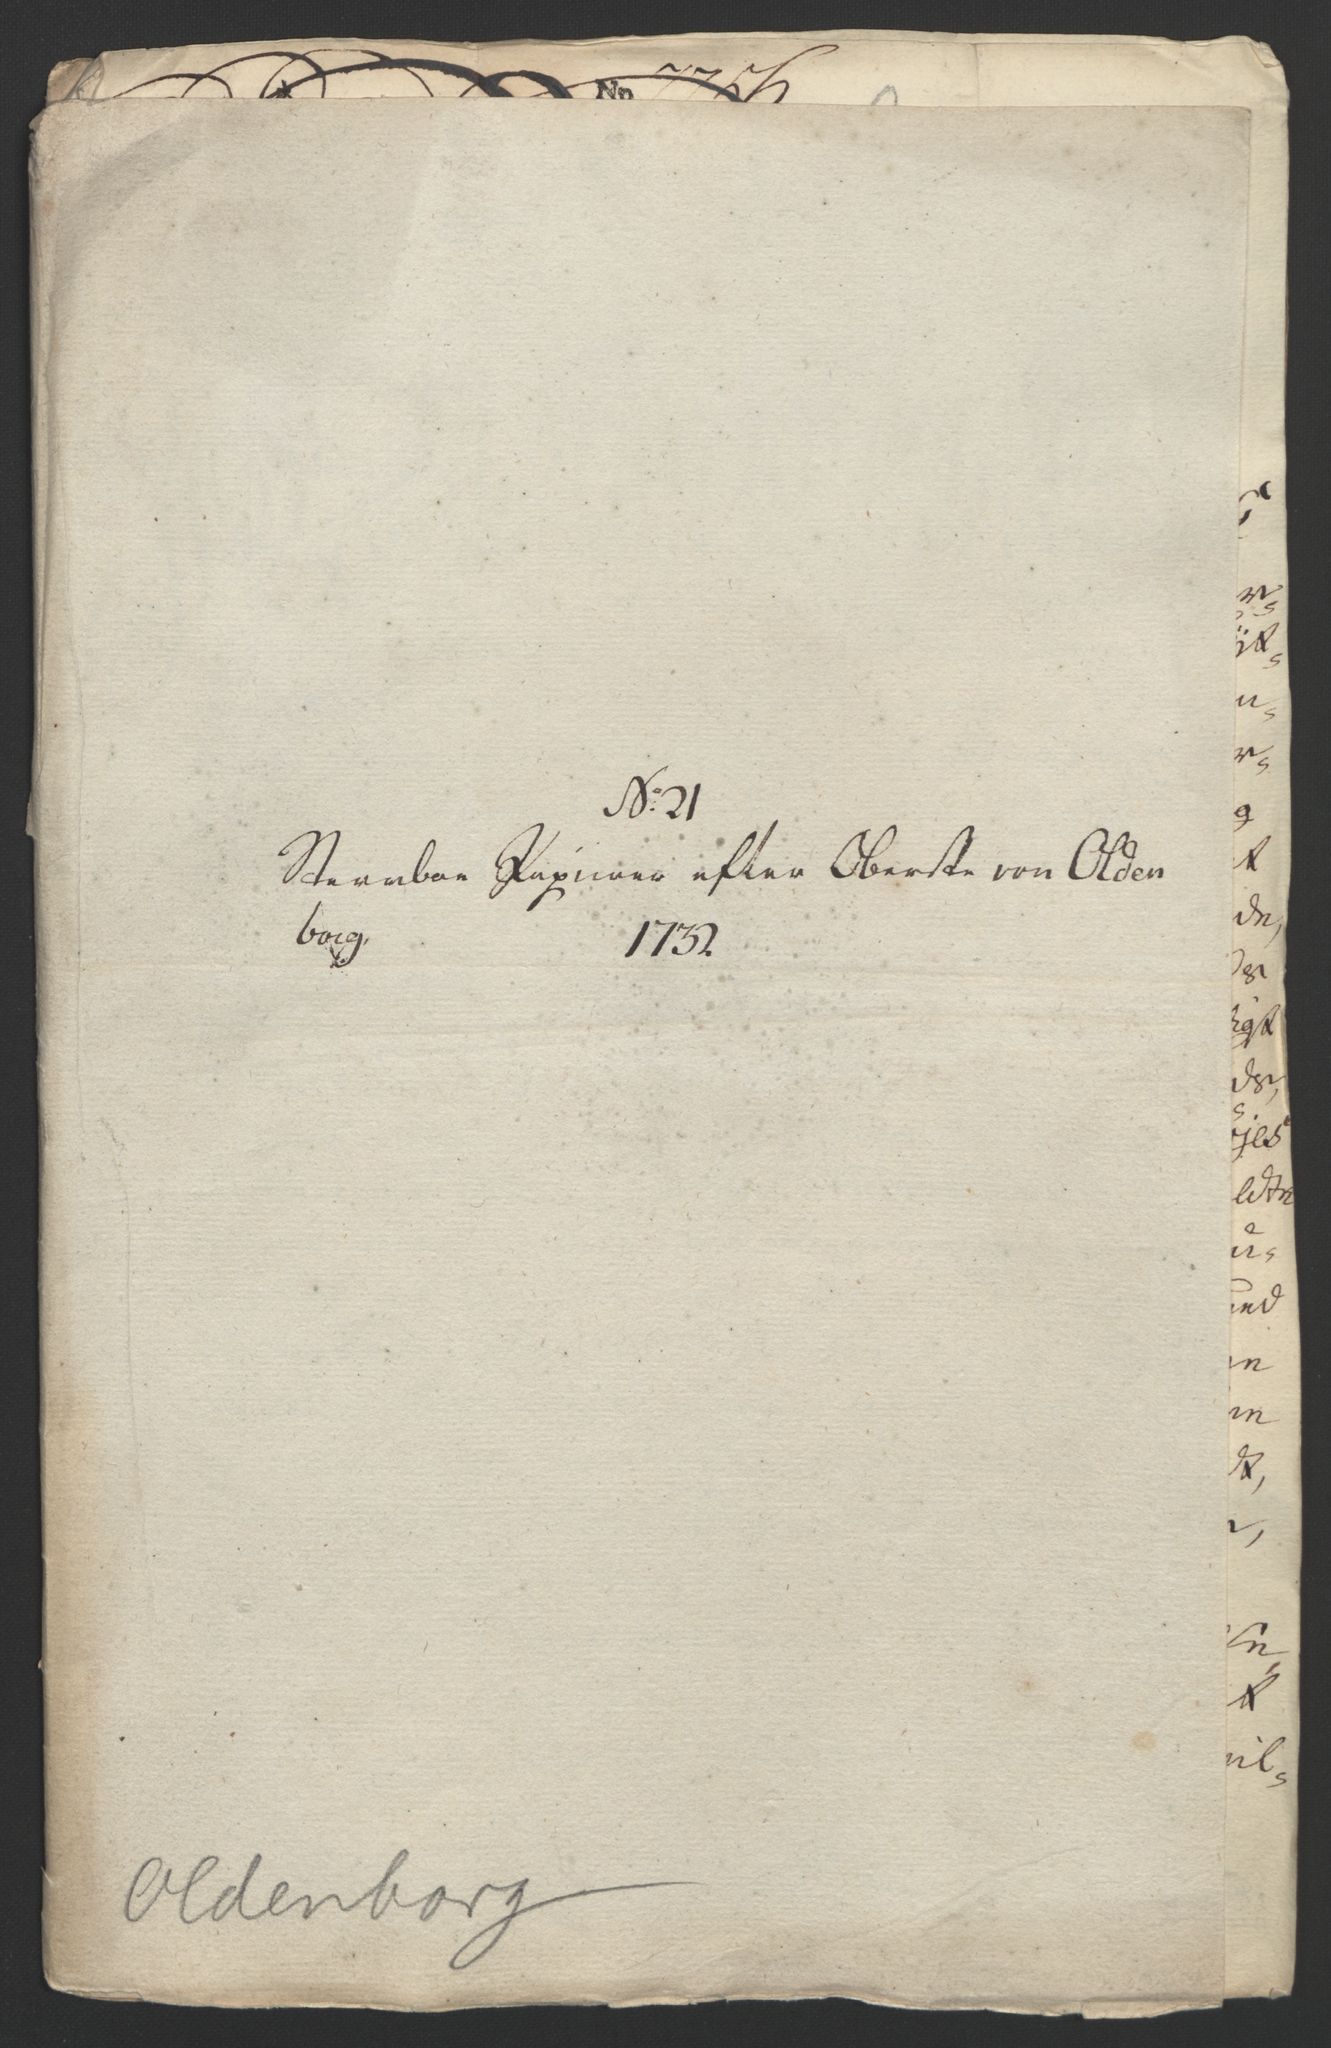 No 7756
No: 21
Sterrvboe Papiirer efter Oberste von Olden
borg.
1732
Oldenborg